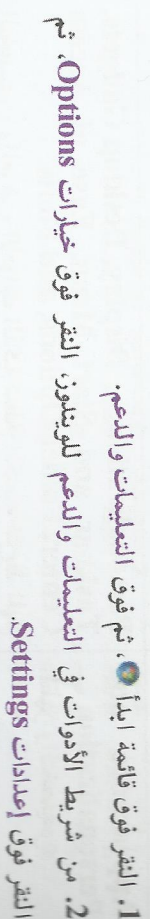 1. النقر فوق قائمة ابدأ ، ثم فوق التعليمات والدعم.
2. من شريط الأدوات في التعليمات والدعم للويندوز، النقر فوق خيارات Options، ثم
النقر فوق إعدادات Settings.